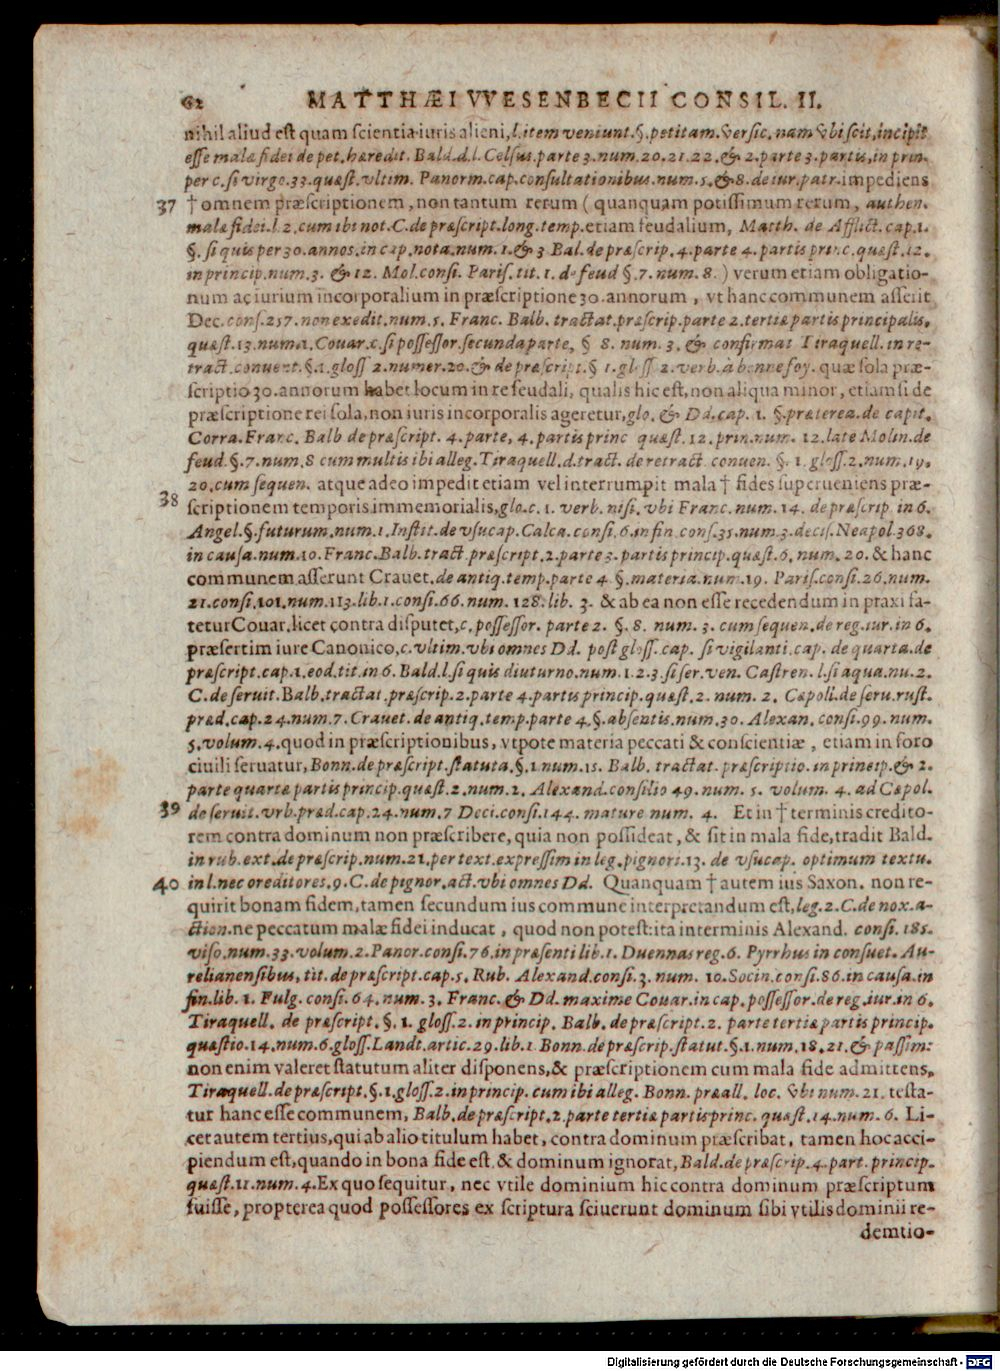 62 MATTHÆI VVESENBECII CONSIL. II.
nihil aliud est quam scientia iuris alieni, l. item veniunt. §. petitam. versic. nam vbi scit, incipit
esse mala fidei de pet. hæredit. Bald. d. l. Celsus. parte 3. num. 20. 21. 22. & 2. parte 3. partis, in prin-
per c. si virgo. 33. quæst. vltim. Panorm. cap. consultationibus. num. 5. & 8. de iur. patr. impediens
37 † omnem præscriptionem, non tantum rerum (quanquam potissimum rerum, authen.
malæ fidei. l. 2. cum ibi not. C. de præscript. long. temp. etiam feudalium, Matth. de Afflict. cap. 1.
§. si quis per 30. annos. in cap. nota. num. 1. & 3 Bal. de præscrip. 4. parte 4. partis princ. quæst. 12.
in princip. num. 3. & 12. Mol. consi. Paris. tit. 1. de feud §. 7. num. 8.) verum etiam obligatio-
num ac iurium incorporalium in præscriptione 30. annorum, vt hanc communem asserit
Dec. cons. 257. non exedit. num. 5. Franc. Balb. tractat. præscrip. parte 2. tertiæ partis principalis,
quæst. 13. num. 1. Couar. c. si possessor. secunda parte, § 8. num. 3. & confirmat Tiraquell. in re-
tract. conuent. §. 1. gloss 2. numer. 20. & de præscript. § 1. gloss. 2. verb. à bonne foy. quæ sola præ-
scriptio 30. annorum habet locum in re feudali, qualis hic est, non aliqua minor, etiamsi de
præscriptione rei sola, non iuris incorporalis ageretur, glo. & Dd. cap. 1. §. præterea. de capit.
Corra. Franc. Balb de præscript. 4. parte, 4. partis princ quæst. 12. prin. num. 12. late Molin. de
feud. §. 7. num. 8 cum multis ibi alleg. Tiraquell. d. tract. de retract. conuen. §. 1. gloss. 2. num. 19.
20. cum sequen. atque adeo impedit etiam vel interrumpit mala † fides superueniens præ-
38 scriptionem temporis immemorialis, glo. c. 1. verb. nisi. vbi Franc. num. 14. de præscrip. in 6.
Angel. §. futurum. num. 1. Instit. de vsucap. Calca. consi. 6. in fin cons. 35. num. 3. decis. Neapol 368.
in causa. num. 10. Franc. Balb. tract. præscript. 2. parte 3. partis princip. quæst. 6. num. 20. & hanc
communem asserunt Crauet. de antiq. temp. parte 4. §. materia. num. 19. Paris. consi. 26. num.
21. consi. 101. num. 113. lib. 1. consi. 66. num. 128. lib. 3. & ab ea non esse recedendum in praxi fa-
tetur Couar. licet contra disputet, c. possessor. parte 2. §. 8. num. 3. cum sequen. de reg. iur. in 6.
præsertim iure Canonico, c. vltim. vbi omnes Dd. post gloss. cap. si vigilanti. cap. de quarta. de
præscript. cap. 1. eod. tit. in 6. Bald. l. si quis diuturno. num. 1. 2. 3. si ser. ven. Castren. l. si aqua. nu. 2.
C. de seruit. Balb. tractat. præscrip. 2. parte 4. partis princip. quæst. 2. num. 2. Cæpoli. de seru. rust.
præd. cap. 24. num. 7. Crauet. de antiq. temp. parte 4. §. absentis. num. 30. Alexan. consi. 99. num.
5. volum. 4. quod in præscriptionibus, vtpote materia peccati & conscientiæ, etiam in foro
ciuili seruatur, Bonn. de præscript. statuta. §. 1. num. 15. Balb. tractat. præscriptio. in princip. & 2.
parte quartæ partis princip. quæst. 2. num. 2. Alexand. consilio 49. num. 5. volum. 4. ad Cæpol.
39 de seruit. vrb. præd. cap. 24. num. 7 Deci. consi. 144. mature num. 4. Et in † terminis credito-
rem contra dominum non præscribere, quia non possideat, & sit in mala fide, tradit Bald.
in rub. ext. de præscrip. num. 21. per text. expressim in leg. pignori. 13. de vsucap. optimum textu.
40 in l. nec creditores. 9. C. de pignor. act. vbi omnes Dd. Quanquam † autem ius Saxon. non re-
quirit bonam fidem, tamen secundum ius commune interpretandum est, leg. 2. C. de nox. a-
ction. ne peccatum malæ fidei inducat, quod non potest: ita in terminis Alexand. consi. 185.
viso. num. 33. volum. 2. Panor. consi. 76. in præsenti lib. 1. Duennas reg. 6. Pyrrhus in consuet. Au-
relianensibus, tit. de præscript. cap. 5. Rub. Alexand. consi. 3. num. 10. Socin. consi. 86. in causa. in
fin. lib. 1. Fulg. consi. 64. num. 3. Franc. & Dd. maxime Couar. in cap. possessor. de reg. iur. in 6.
Tiraquell. de præscript. §. 1. gloss. 2. in princip. Balb. de præscript. 2. parte tertiæ partis princip.
quæstio. 14. num. 6. gloss. Landt. artic. 29. lib. 1 Bonn. de præscrip. statut. §. 1. num. 18. 21. & passim:
non enim valeret statutum aliter disponens, & præscriptionem cum mala fide admittens,
Tiraquell. de præscript. §. 1. gloss. 2. in princip. cum ibi alleg. Bonn. præall. loc. vbi num. 21. testa-
tur hanc esse communem, Balb. de præscript. 2. parte tertiæ partis princ. quæst. 14. num. 6. Li-
cet autem tertius, qui ab alio titulum habet, contra dominum præscribat, tamen hoc acci-
piendum est, quando in bona fide est, & dominum ignorat, Bald. de præscrip. 4. part. princip.
quæst. 11. num. 4. Ex quo sequitur, nec vtile dominium hic contra dominum præscriptum
fuisse, propterea quod possessores ex scriptura sciuerunt dominum sibi vtilis dominii re-
demtio-
Digitalisierung gefördert durch die Deutsche Forschungsgemeinschaft - DFG